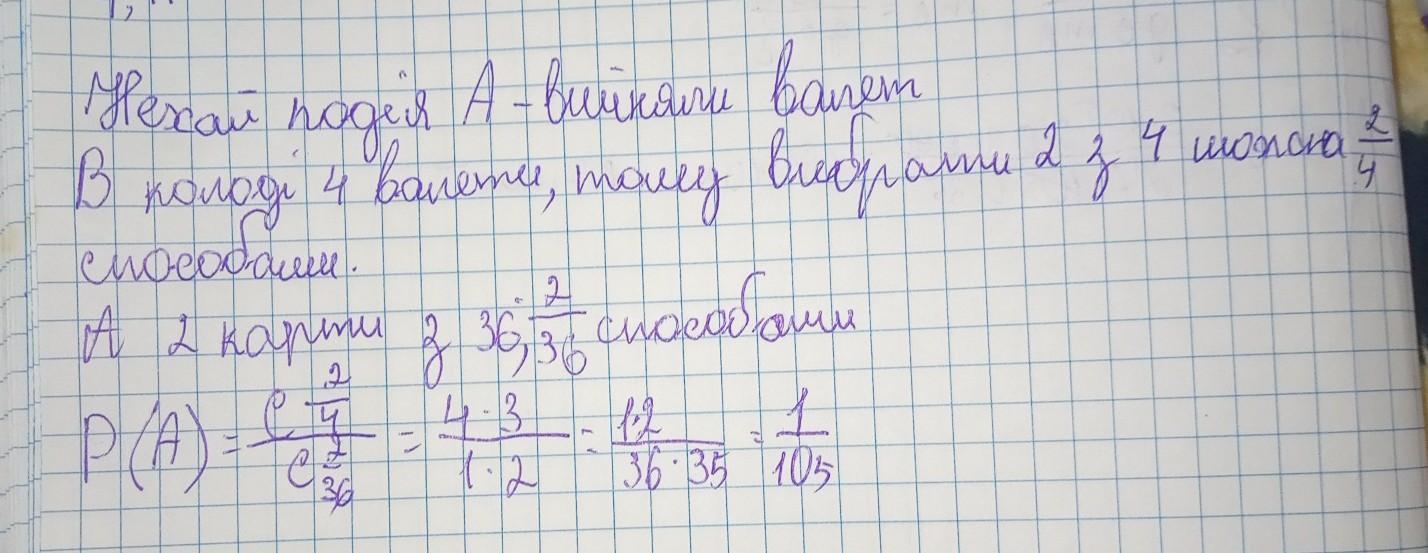 Нехай подія А - вийняли валет
В колоді 4 валети, тому вибрати 2 з 4 можна 2/4
способами.
А 2 карти з 36, 2/36 способами
P(A) = C 2/4 / C 2/36 = 4·3 / 1·2 = 1·2 / 36·35 = 1/105